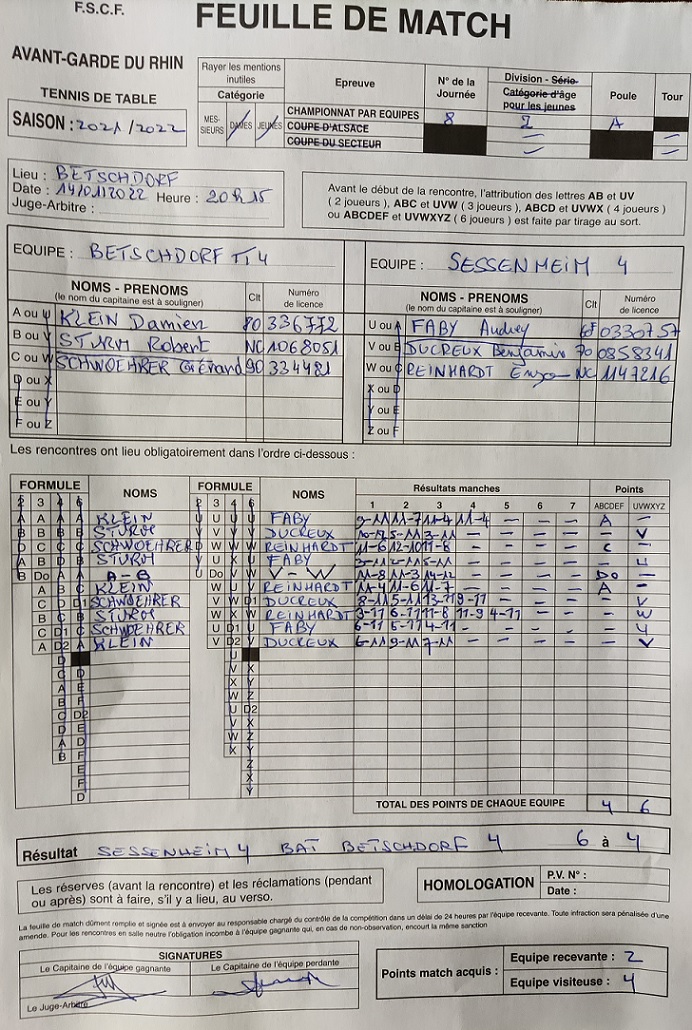 F.S.C.F.
FEUILLE DE MATCH
AVANT-GARDE DU RHIN
TENNIS DE TABLE
SAISON : 2021 / 2022
Rayer les mentions inutiles
Catégorie
MES-SIEURS DAMES JEUNES
Epreuve
N° de la Journée
Division - Série
Catégorie d'âge pour les jeunes
Poule
Tour
CHAMPIONNAT PAR EQUIPES 8 2 A
COUPE D'ALSACE — —
COUPE DU SECTEUR — —
Lieu : BETSCHDORF
Date : 14/01/2022 Heure : 20 h 15
Juge-Arbitre :
Avant le début de la rencontre, l'attribution des lettres AB et UV
( 2 joueurs), ABC et UVW ( 3 joueurs), ABCD et UVWX ( 4 joueurs)
ou ABCDEF et UVWXYZ ( 6 joueurs ) est faite par tirage au sort.
EQUIPE : BETSCHDORF TT 4
NOMS - PRENOMS
(le nom du capitaine est à souligner)
Clt
Numéro de licence
A ou U KLEIN Damien 80 336772
B ou V STURM Robert NC 1068051
C ou W SCHWOEHRER Gérard 90 334481
D ou X
E ou Y
F ou Z
EQUIPE : SESSENHEIM 4
NOMS - PRENOMS
(le nom du capitaine est à souligner)
Clt
Numéro de licence
U ou A FABY Audrey 0330757
V ou B DUCREUX Benjamin 70 0858341
W ou C REINHARDT Enzo NC 1147216
X ou D
Y ou E
Z ou F
Les rencontres ont lieu obligatoirement dans l'ordre ci-dessous :
FORMULE NOMS FORMULE NOMS Résultats manches Points
2 3 4 6 2 3 4 6 1 2 3 4 5 6 7 ABCDEF UVWXYZ
A A A A KLEIN U U U U FABY 9-11 11-7 11-4 11-4 — — — A —
B B B B STURM V V V V DUCREUX 10-12 5-11 3-11 — — — — — V
C C C SCHWOEHRER W W W REINHARDT 11-6 12-10 11-8 — — — — C —
A B D STURM U X U FABY 3-11 2-11 5-11 — — — — — U
B Do A A A-B U Do V V V W 11-8 11-3 14-12 — — — — Do —
A B C KLEIN W U REINHARDT 11-4 11-6 11-7 — — — — A —
C D D1 SCHWOEHRER V W D1 DUCREUX 5-11 13-11 9-11 — — — — V
B C B STURM W X W REINHARDT 3-11 6-11 11-8 11-9 4-11 — — — W
C D1 C SCHWOEHRER U D1 U FABY 6-11 5-11 4-11 — — — — — U
A D2 A KLEIN V D2 V DUCREUX 6-11 9-11 7-11 — — — — — V
D U
C D V X
A E X Y
B F W Z
C D2 U D2
D E V X
A D W Z
B F X Y
E Z
F X
D Y
TOTAL DES POINTS DE CHAQUE EQUIPE 4 6
Résultat SESSENHEIM 4 BAT BETSCHDORF 4 6 à 4
Les réserves (avant la rencontre) et les réclamations (pendant
ou après) sont à faire, s'il y a lieu, au verso.
HOMOLOGATION
P.V. N° :
Date :
La feuille de match dûment remplie et signée est à envoyer au responsable chargé du contrôle de la compétition dans un délai de 24 heures par l'équipe recevante. Toute infraction sera pénalisée d'une
amende. Pour les rencontres en salle neutre l'obligation incombe à l'équipe gagnante qui, en cas de non-observation, encourt la même sanction
SIGNATURES
Le Capitaine de l'équipe gagnante
Le Capitaine de l'équipe perdante
Le Juge-Arbitre
Points match acquis :
Equipe recevante : 2
Equipe visiteuse : 4